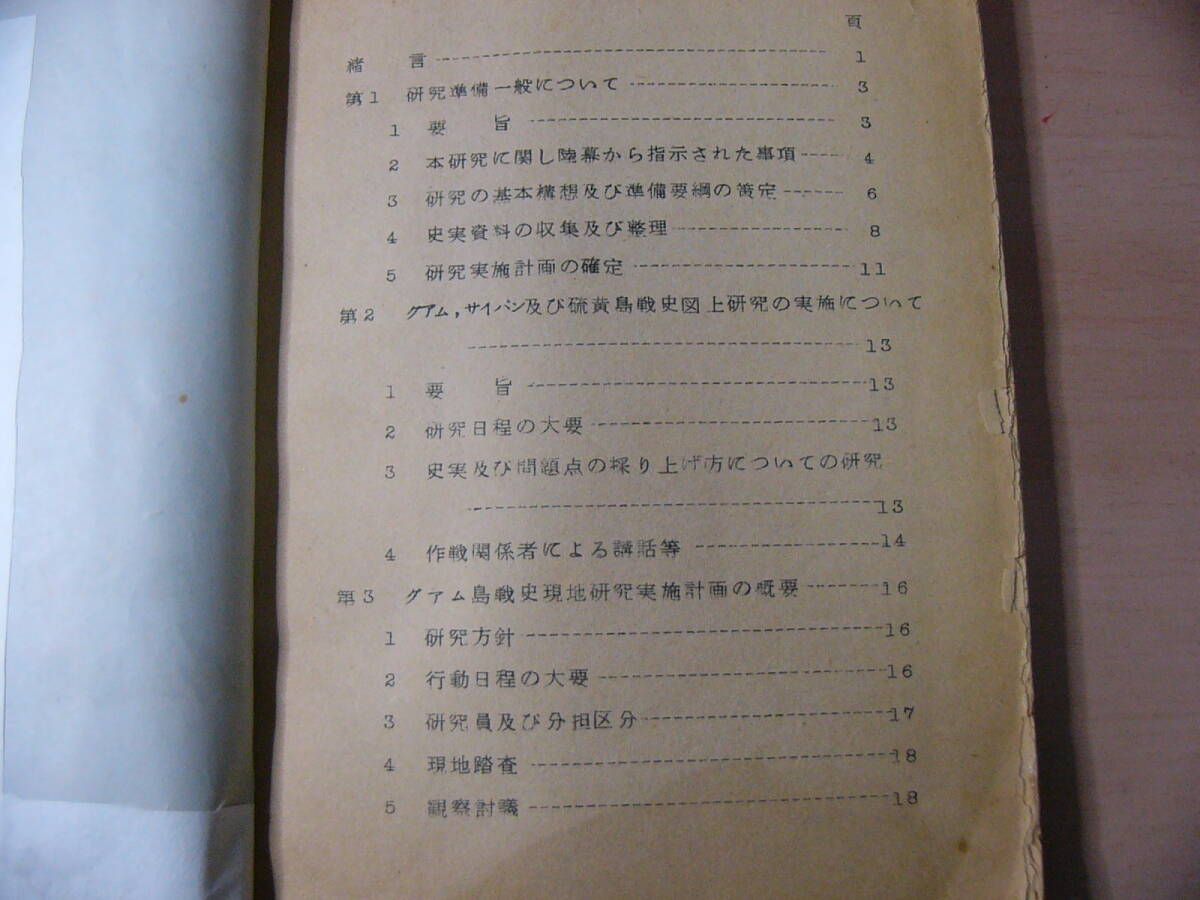 頁
緒 言 ---------- 1
第1 研究準備一般について ---------- 3
1 要 旨 ---------- 3
2 本研究に関し陸幕から指示された事項 ---------- 4
3 研究の基本構想及び準備要綱の策定 ---------- 6
4 史実資料の収集及び整理 ---------- 8
5 研究実施計画の確定 ---------- 11
第2 グアム,サイパン及び硫黄島戦史図上研究の実施について
---------- 13
1 要 旨 ---------- 13
2 研究日程の大要 ---------- 13
3 史実及び問題点の採り上げ方についての研究
---------- 13
4 作戦関係者による講話等 ---------- 14
第3 グアム島戦史現地研究実施計画の概要 ---------- 16
1 研究方針 ---------- 16
2 行動日程の大要 ---------- 16
3 研究員及び分担区分 ---------- 17
4 現地踏査 ---------- 18
5 観察討議 ---------- 18